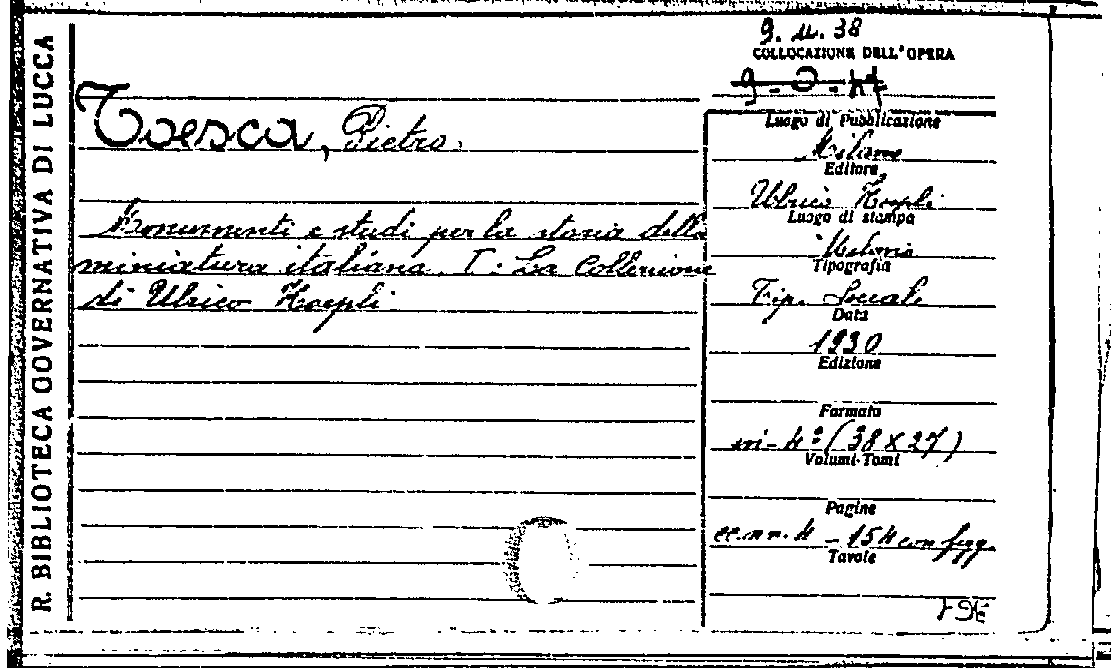 R. BIBLIOTECA GOVERNATIVA DI LUCCA
Toesca, Pietro.
Monumenti e studi per la storia della
miniatura italiana. I: La Collezione
di Ulrico Hoepli
COLLOCAZIONE DELL'OPERA
Luogo di Pubblicazione
Milano
Editore
Ulrico Hoepli
Luogo di stampa
Tipografia
Tip. Sociale
Data
1930
Edizione
Formato
in-4º (38 x 27)
Volumi-Tomi
Pagine
cc.nn. 4 - 154 con figg.
Tavole